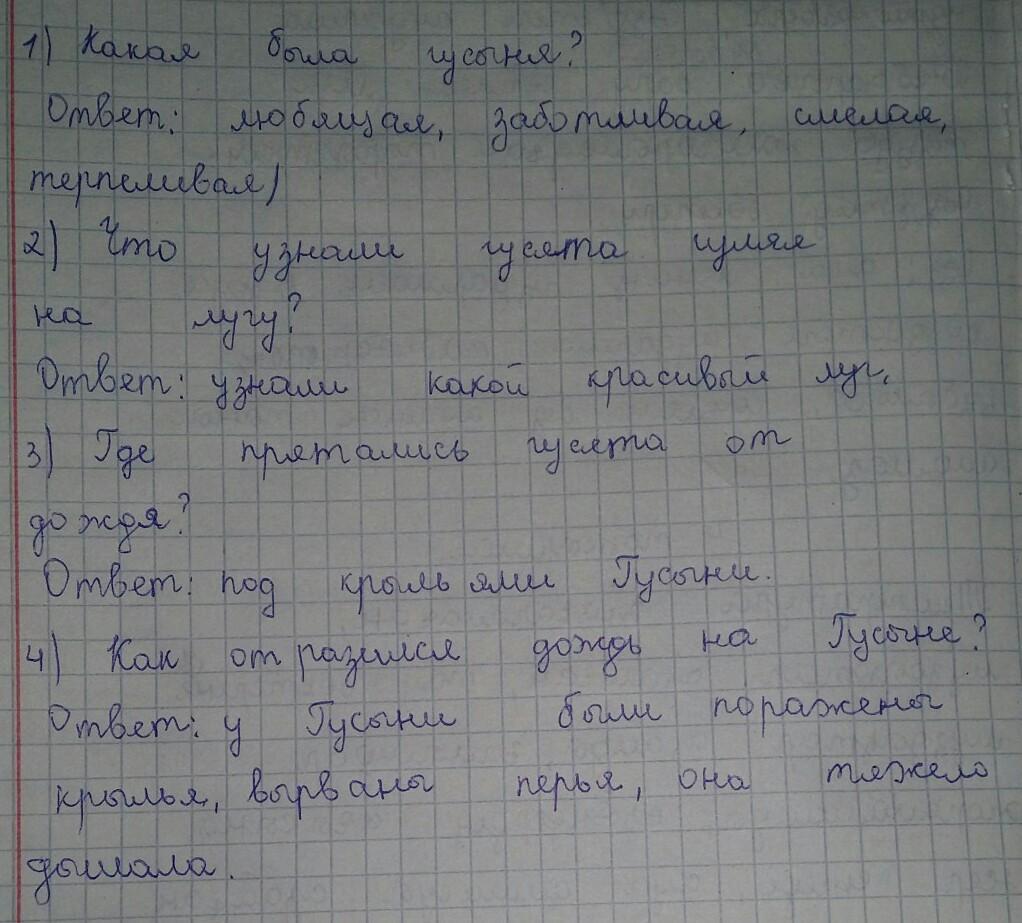 1) Какая была гусыня?
Ответ: любящая, заботливая, смелая,
терпеливая)
2) Что узнали гусята гуляя
на лугу?
Ответ: узнали какой красивый луг.
3) Где прятались гусята от
дождя?
Ответ: под крыльями Гусыни.
4) Как отразился дождь на Гусыне?
Ответ: у Гусыни были поражены
крылья, вырваны перья, она тяжело
дышала.